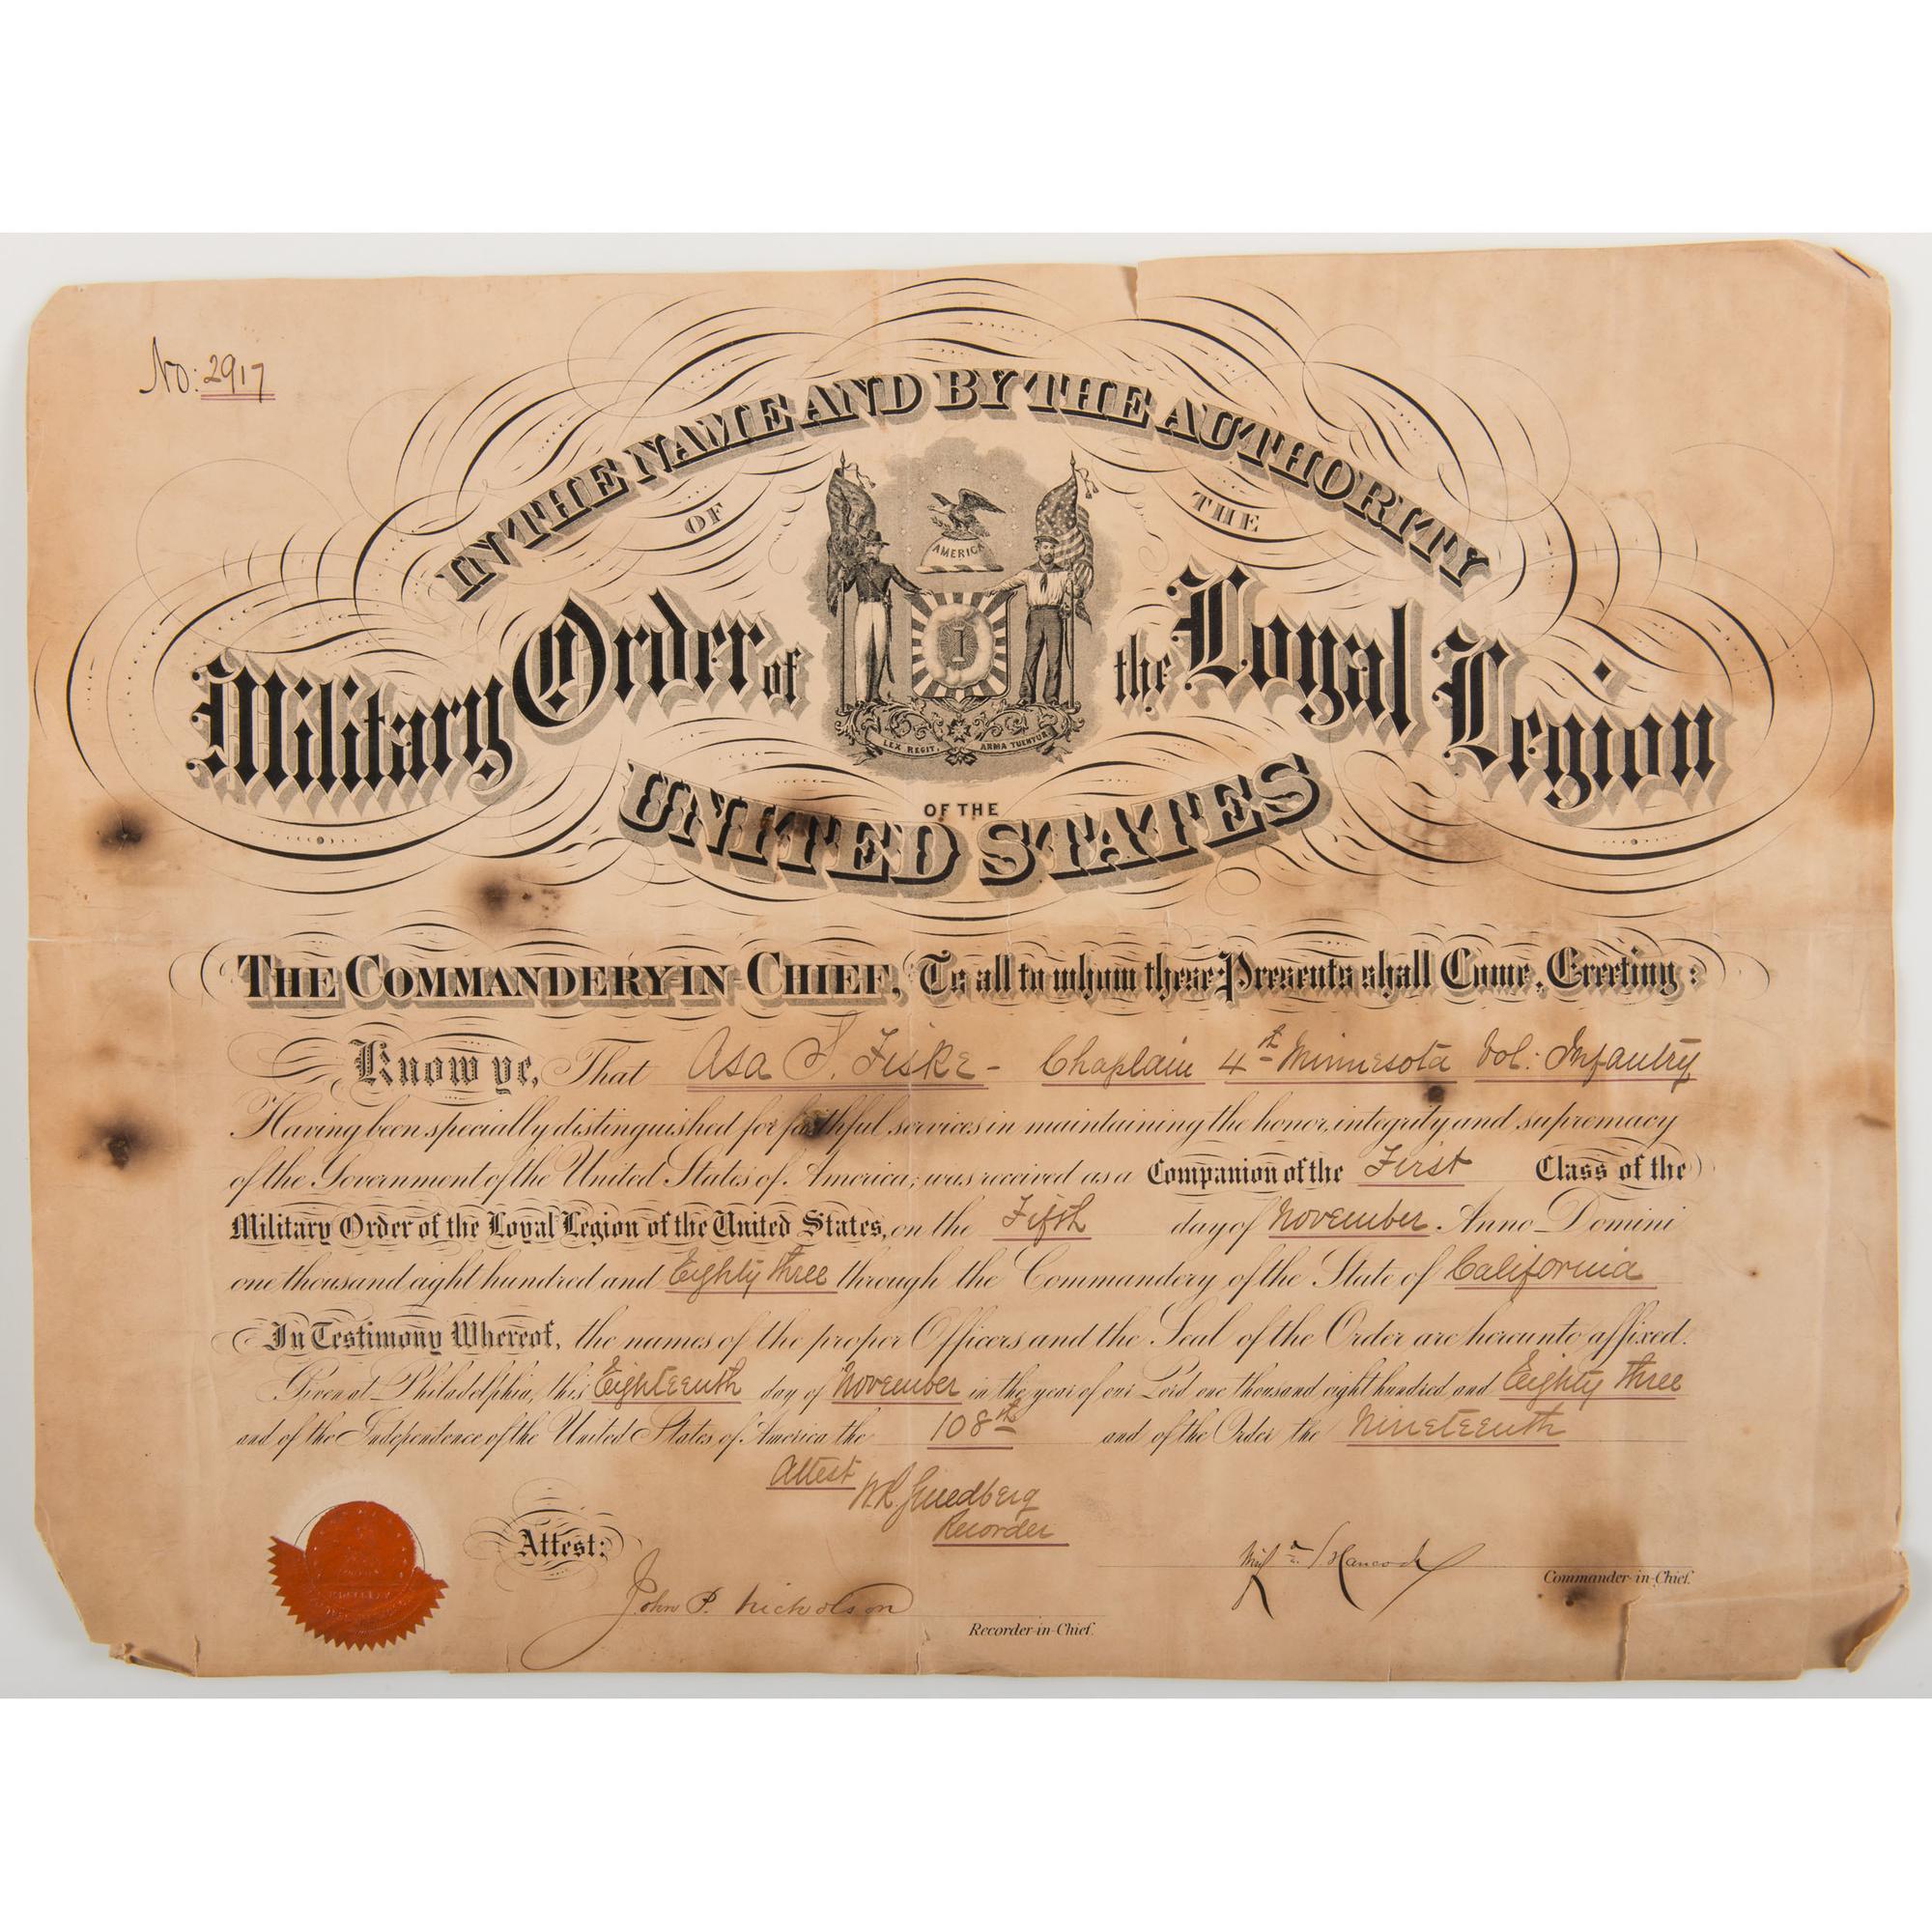 No: 2917
IN THE NAME AND BY THE AUTHORITY
OF THE
AMERICA
Military Order of the Loyal Legion
LEX REGIT, ARMA TUENTUR
OF THE
UNITED STATES
THE COMMANDERY IN CHIEF, To all to whom these Presents shall Come, Greeting:
Know ye, That Asa S. Fiske - Chaplain 4th Minnesota Vol: Infantry
Having been specially distinguished for faithful services in maintaining the honor, integrity and supremacy
of the Government of the United States of America, was received as a Companion of the First Class of the
Military Order of the Loyal Legion of the United States, on the Fifth day of November Anno Domini
one thousand eight hundred and Eighty three through the Commandery of the State of California
In Testimony Whereof, the names of the proper Officers and the Seal of the Order are hereunto affixed.
Given at Philadelphia, this Eighteenth day of November in the year of our Lord one thousand eight hundred and Eighty three
and of the Independence of the United States of America the 108th and of the Order the Nineteenth
Attest W.R. Smedberg
Recorder
Attest:
Winfd S. Hancock
Commander-in-Chief.
John P. Nicholson
Recorder-in-Chief.